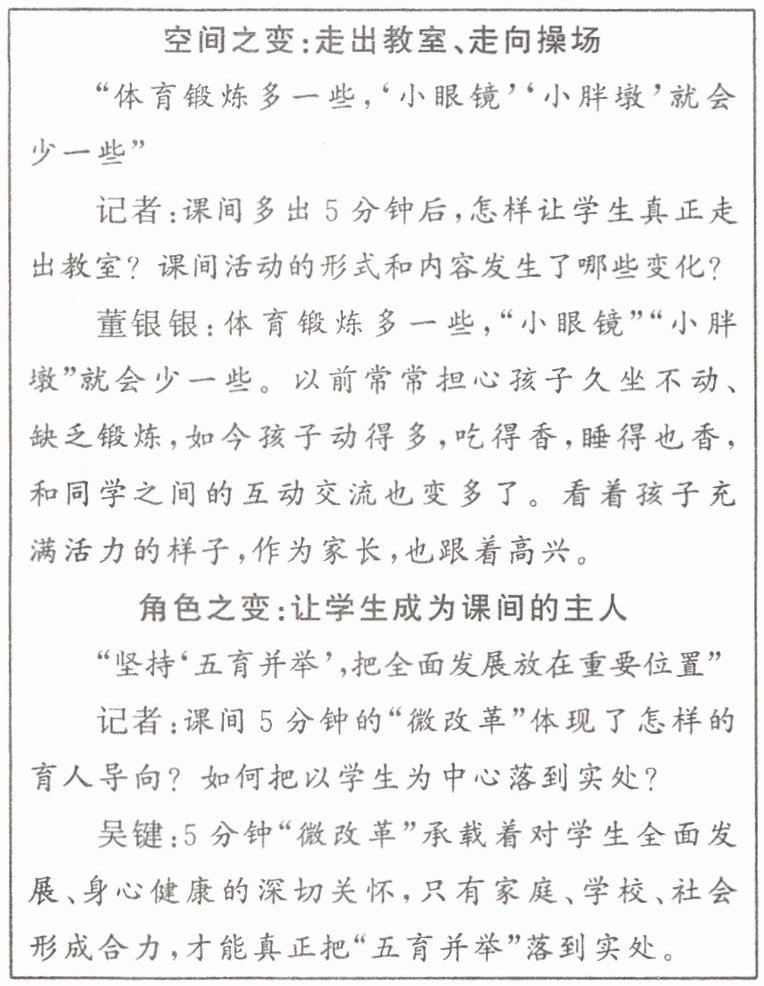 空间之变:走出教室、走向操场
“体育锻炼多一些,‘小眼镜’‘小胖墩’就会
少一些”
记者:课间多出5分钟后,怎样让学生真正走
出教室?课间活动的形式和内容发生了哪些变化?
董银银:体育锻炼多一些,“小眼镜”“小胖
墩”就会少一些。以前常常担心孩子久坐不动、
缺乏锻炼,如今孩子动得多,吃得香,睡得也香,
和同学之间的互动交流也变多了。看着孩子充
满活力的样子,作为家长,也跟着高兴。
角色之变:让学生成为课间的主人
“坚持‘五育并举’,把全面发展放在重要位置”
记者:课间5分钟的“微改革”体现了怎样的
育人导向?如何把以学生为中心落到实处?
吴键:5分钟“微改革”承载着对学生全面发
展、身心健康的深切关怀,只有家庭、学校、社会
形成合力,才能真正把“五育并举”落到实处。